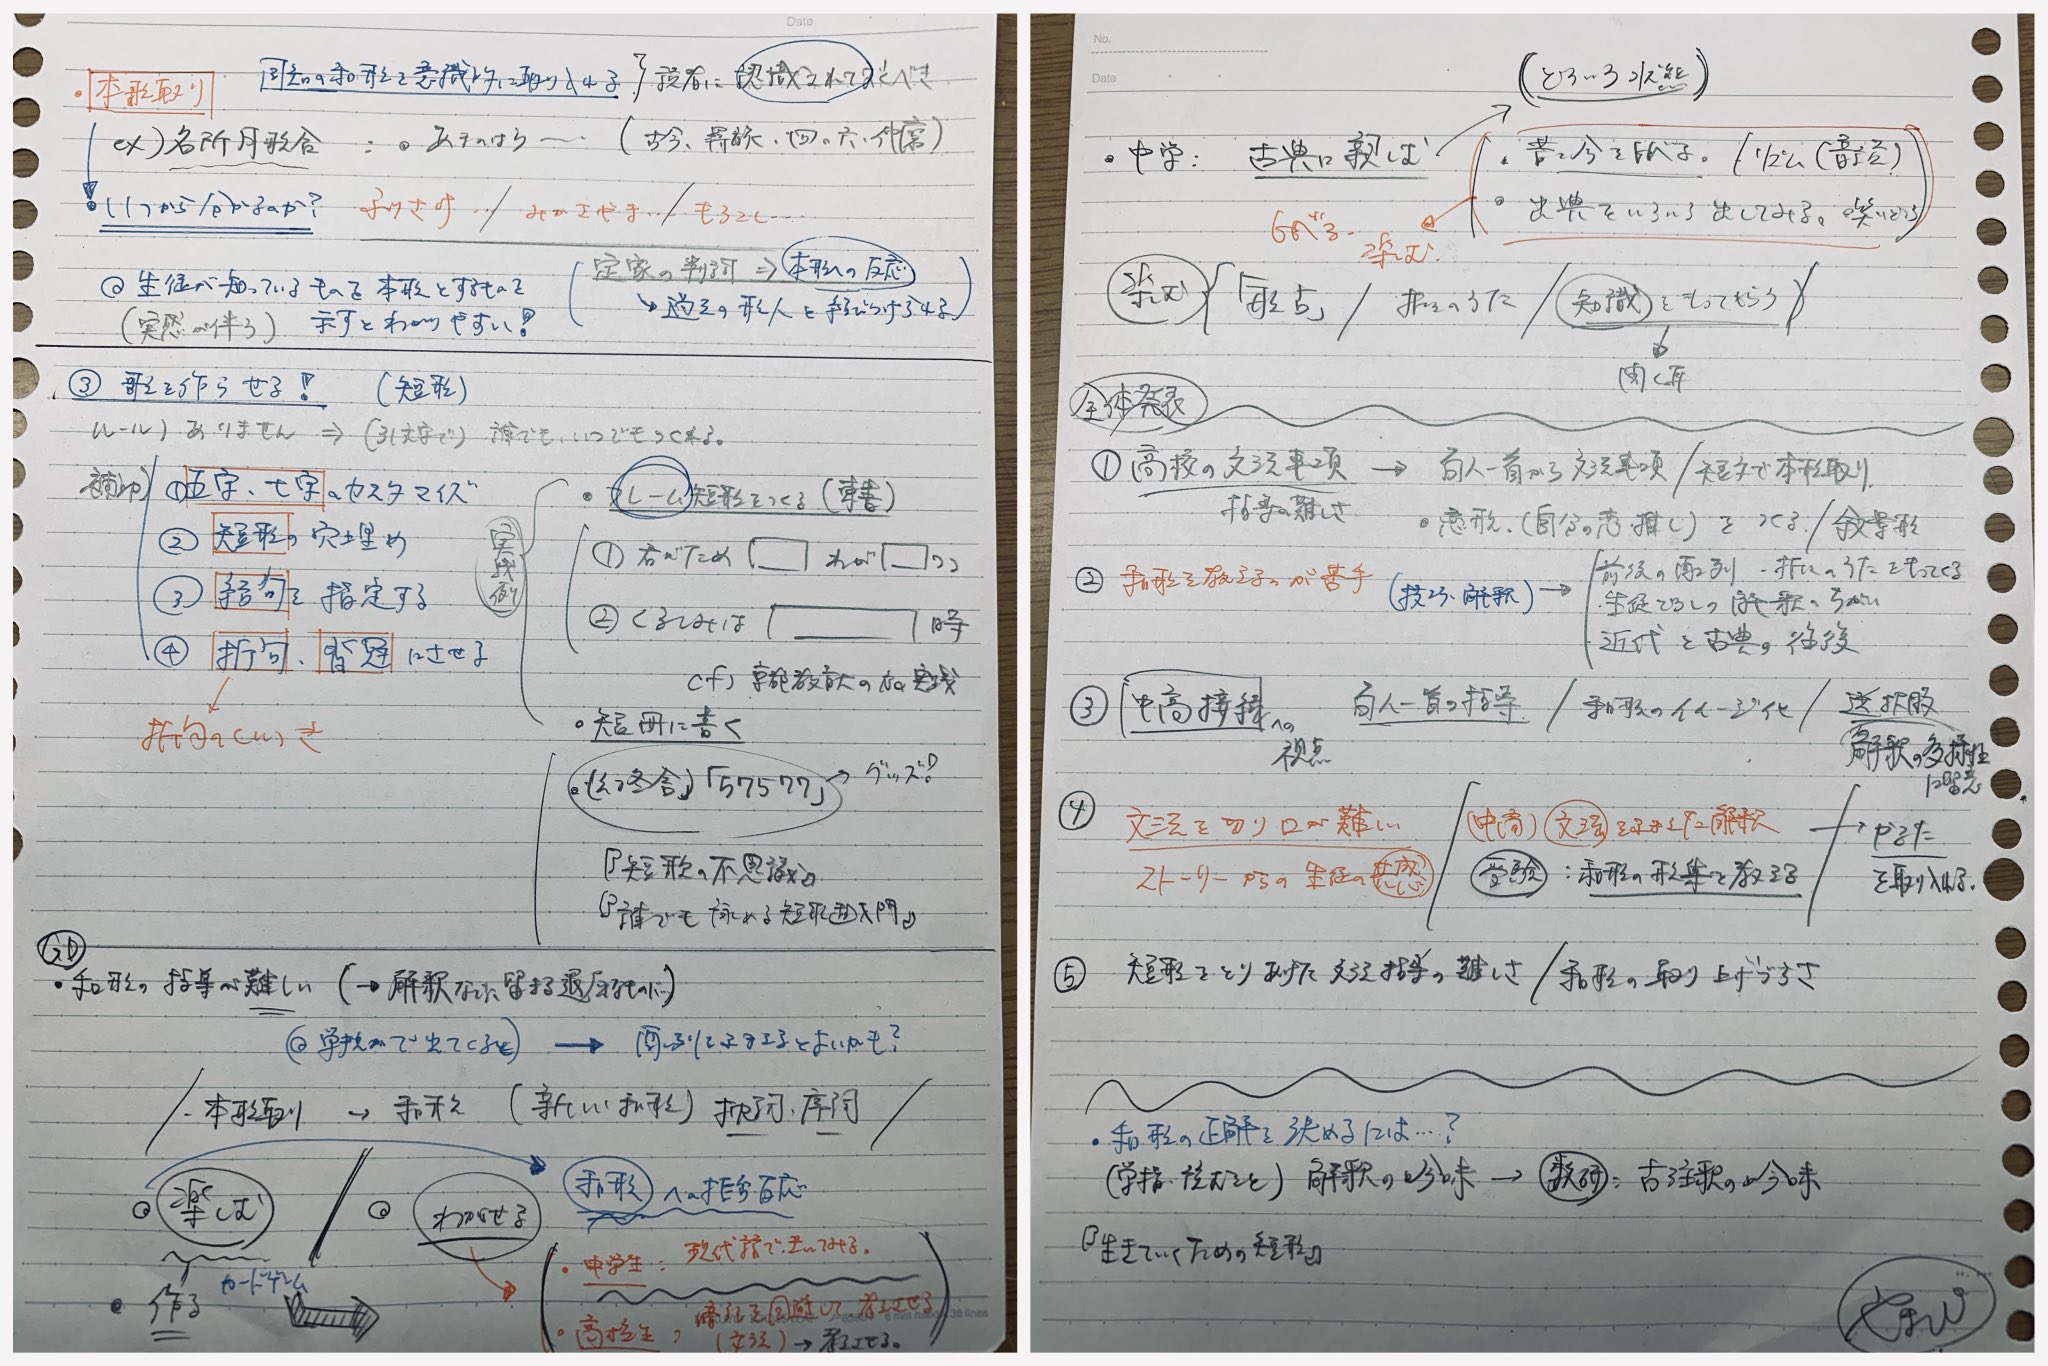 Date
・本歌取り 周知の和歌を意識的に取り入れる 読者に認識されておくべき
ex)名所月歌合 : ・あまのはら〜 (古今、羇旅、四〇六、仲麿)
・いつから分かるのか? ふりさけ… / みかさやま… / もろこし…
定家の判詞 ⇒ 本歌への反応
◎生徒が知っているものを本歌とするものを
(実感が伴う) 示すとわかりやすい!
③ 歌を作らせる! (短歌)
ルール)ありません ⇒ (31文字で)誰でも、いつでもつくれる。
補助 ①五字、七字のカスタマイズ
②短歌の穴埋め
③結句を指定する
④折句、沓冠にさせる
折句
実践例
・クレーム短歌をつくる
①君がため□わが□つつ
②くるしみは□時
cf)京都教育大の 実践
・短冊に書く
・幻冬舎「57577」→グッズ?
『短歌の不思議』
『誰でも詠める短歌入門』
GD
・和歌の指導が難しい
→ 問いにふまえるとよいかも?
・本歌取り → 和歌 (新しい和歌) 枕詞、序詞
◎楽しむ ◎わからせる 和歌への拒否反応
カードゲーム
・作る
・中学生:現代語で書いてみる。
・高校生: 考えさせる
(文法)→考えさせる。
No.
Date
(どういう状態)
・中学: 古典に親しむ
・昔と今を比べる。 / リズム(音読)
・出典をいろいろ出してみる。
比べる。 楽しむ。
楽しむ 「歌占」 / 折々のうた / 知識をもってもらう
聞く耳
全体発表
①高校の文法事項 → 百人一首から文法事項 / 短文で本歌取り
指導の難しさ ・恋歌、(自分の恋、推し)をつくる / 叙景歌
②和歌を教えるのが苦手 (技巧、解釈) →
前後の配列 ・折々のうたをもってくる
・生徒どうしの解釈のちがい
・近代と古典の往復
③中高接続への視点 百人一首の指導 / 和歌のイメージ化 / 選択肢
解釈の多様性に留意
④文法を切り口が難しい / (中高)文法をふまえた解釈 / → やまた
ストーリーからの生徒の共感 受験:和歌の形集を教える を取り入れる。
⑤短歌をとりあげた文法指導の難しさ / 和歌の取り上げづらさ
・和歌の正解を決めるには…?
解釈の吟味 → 教研:古注釈の吟味
『生きていくための短歌』
やまぴ